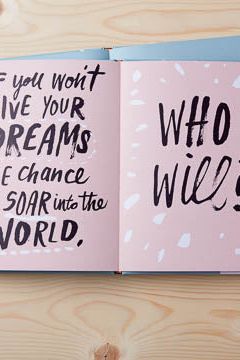 F YOU WON'T
IVE YOUR
DREAMS
E CHANCE
SOAR into the
WORLD,
WHO
Will